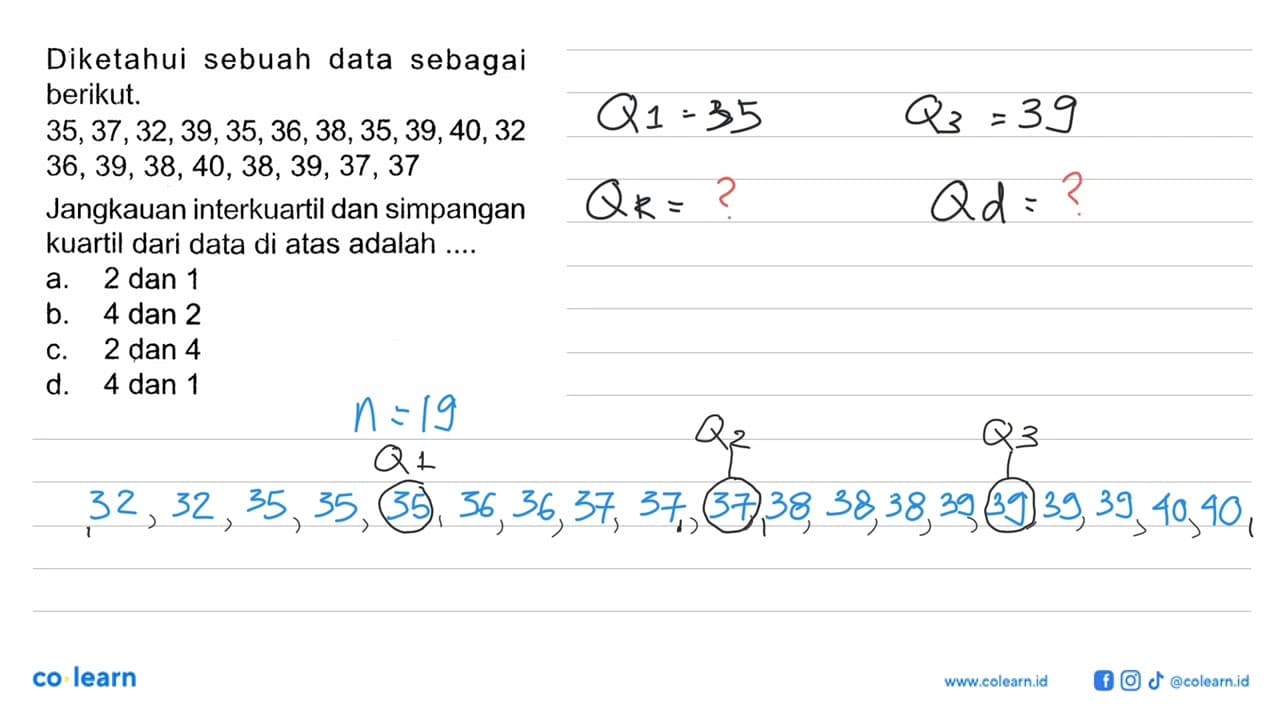 Diketahui sebuah data sebagai
berikut.
35, 37, 32, 39, 35, 36, 38, 35, 39, 40, 32
36, 39, 38, 40, 38, 39, 37, 37
Jangkauan interkuartil dan simpangan
kuartil dari data di atas adalah ....
a. 2 dan 1
b. 4 dan 2
c. 2 dan 4
d. 4 dan 1
Q1 = 35
Q3 = 39
QR = ?
Qd = ?
n = 19
Q1
Q2
Q3
32, 32, 35, 35, 35, 36, 36, 37, 37, 37, 38, 38, 38, 39, 39, 39, 39, 40, 40,
co learn
www.colearn.id
@colearn.id